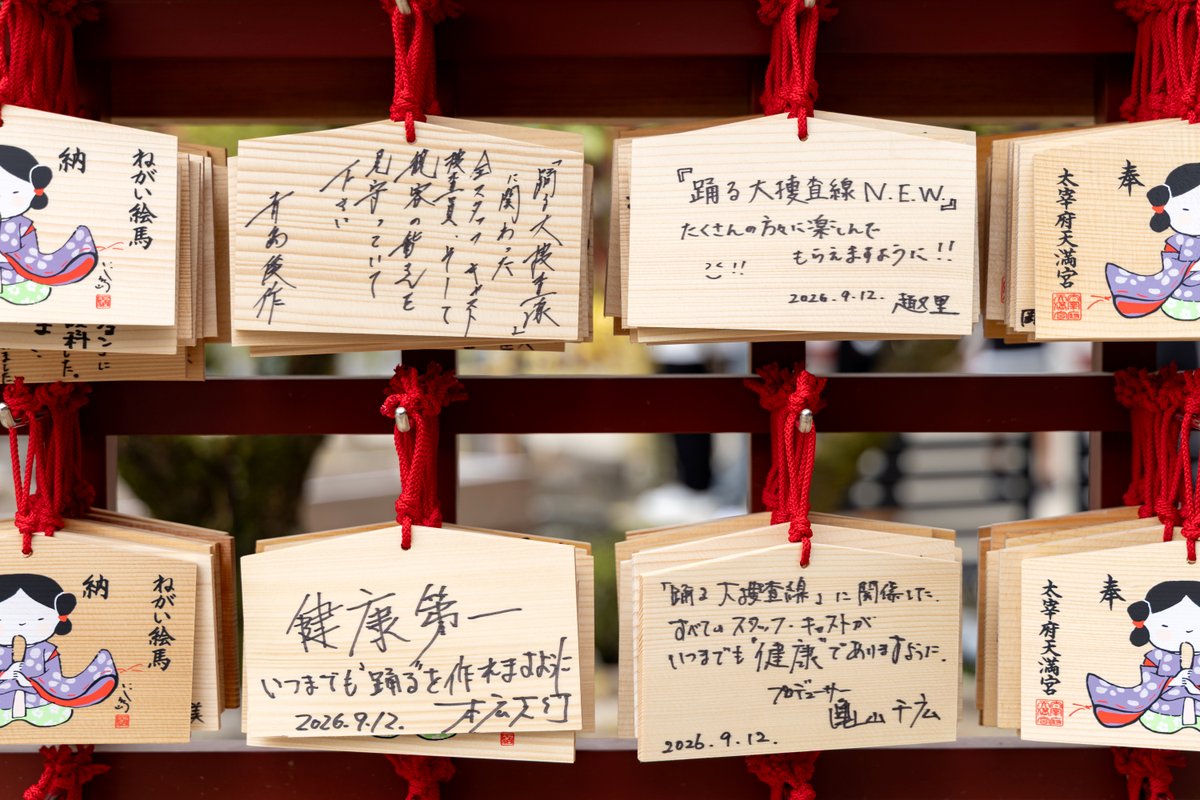 ねがい絵馬
納
「踊る大捜査線」
に関わった
全スタッフ キャスト
捜査員、そして
観客の皆さんを
見守っていて
下さい
青島俊作
『踊る大捜査線 N.E.W.』
たくさんの方々に楽しんで
もらえますように!!
2026.9.12.
奉
太宰府天満宮
ねがい絵馬
納
健康第一
いつまでも"踊る"を作れますように
2026.9.12. 本広克行
「踊る大捜査線」に関係した
すべてのスタッフ・キャストが
いつまでも"健康"でありますように.
プロデューサー
亀山千広
2026.9.12.
奉
太宰府天満宮